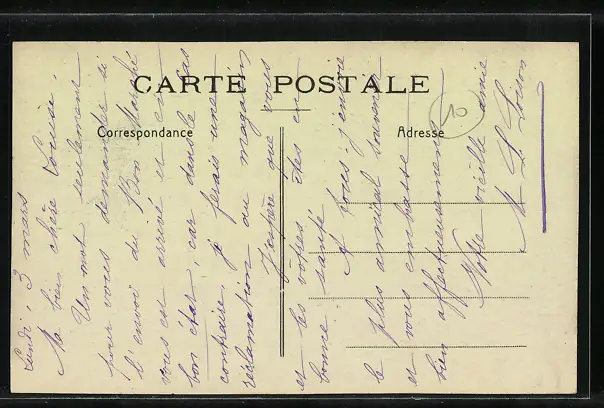 CARTE POSTALE
Correspondance
Adresse
10
Lundi, 3 mars
Ma bien chère Louise,
Un mot seulement
pour vous demander si
l'envoi du Bon Marché
vous est arrivé et en
bon état, car dans le cas
contraire, je ferais une
réclamation au magasin
J'espère que vous
et les vôtres êtes en
bonne santé
A tous j'envoie
le plus amical souvenir
et vous embrasse
bien affectueusement
Votre vieille amie
M L